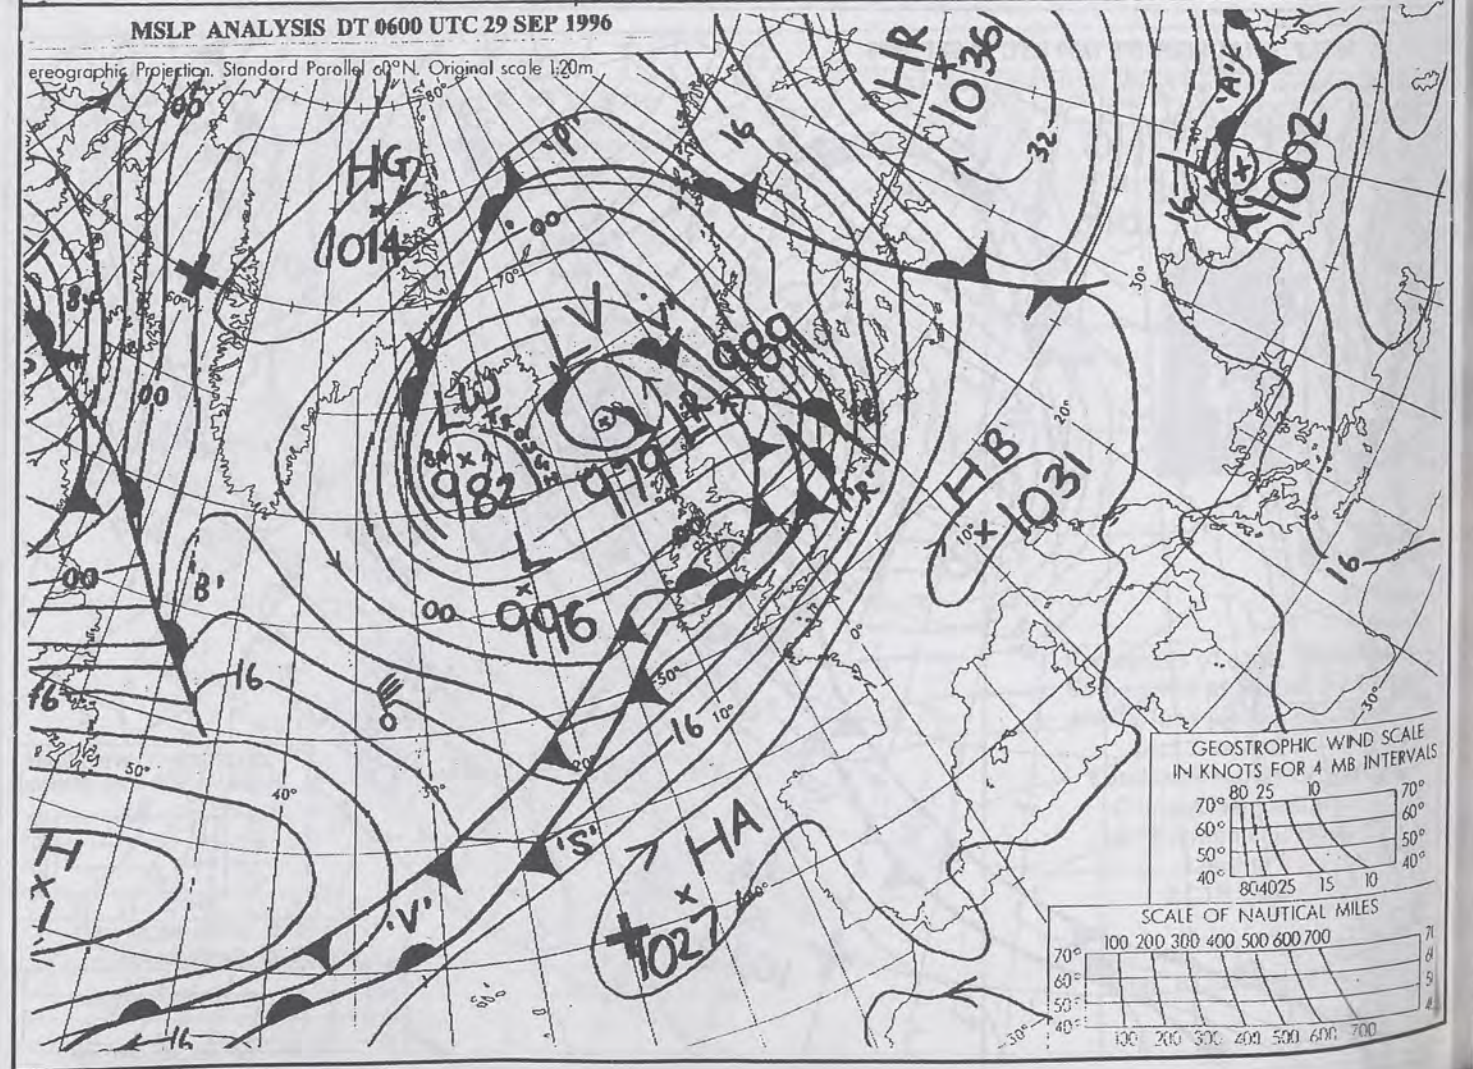 MSLP ANALYSIS DT 0600 UTC 29 SEP 1996
ereographic Projection. Standard Parallel 60°N. Original scale 1:20m
80°
HR
1036
32
16
'A'
L
1002
16
00
HG
1014
'P'
00
70°
30°
60°
00
LW
982
TROUGH
L
979
'J'
LR
989
'R'
20°
HB
1031
10°
16
L
996
00
00
'B'
00
16
16
0
0°
50°
10°
16
20°
30°
40°
50°
30°
H
'S'
'V'
HA
1027
40°
16
30°
GEOSTROPHIC WIND SCALE
IN KNOTS FOR 4 MB INTERVALS
80 25 10
70° 70°
60° 60°
50° 50°
40° 40°
80 40 25 15 10
SCALE OF NAUTICAL MILES
100 200 300 400 500 600 700
70°
60°
50°
40°
100 200 300 400 500 600 700